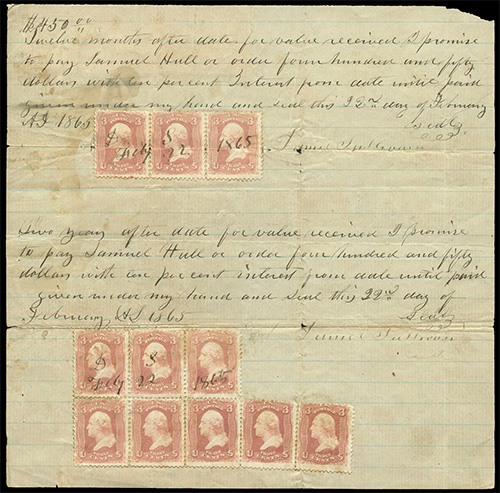 $450.00
Twelve months after date for value received I promise
to pay Samuel Hull or order four hundred and fifty
dollars with ten per cent Interest from date until paid
given under my hand and seal this 22nd day of February
AD 1865
D S 1865
Feby 22
Two years after date for value received I promise
to pay Samuel Hull or order four hundred and fifty
dollars with ten per cent interest from date until paid
given under my hand and seal this 22nd day of
February AD 1865
D S 1865
Feby 22